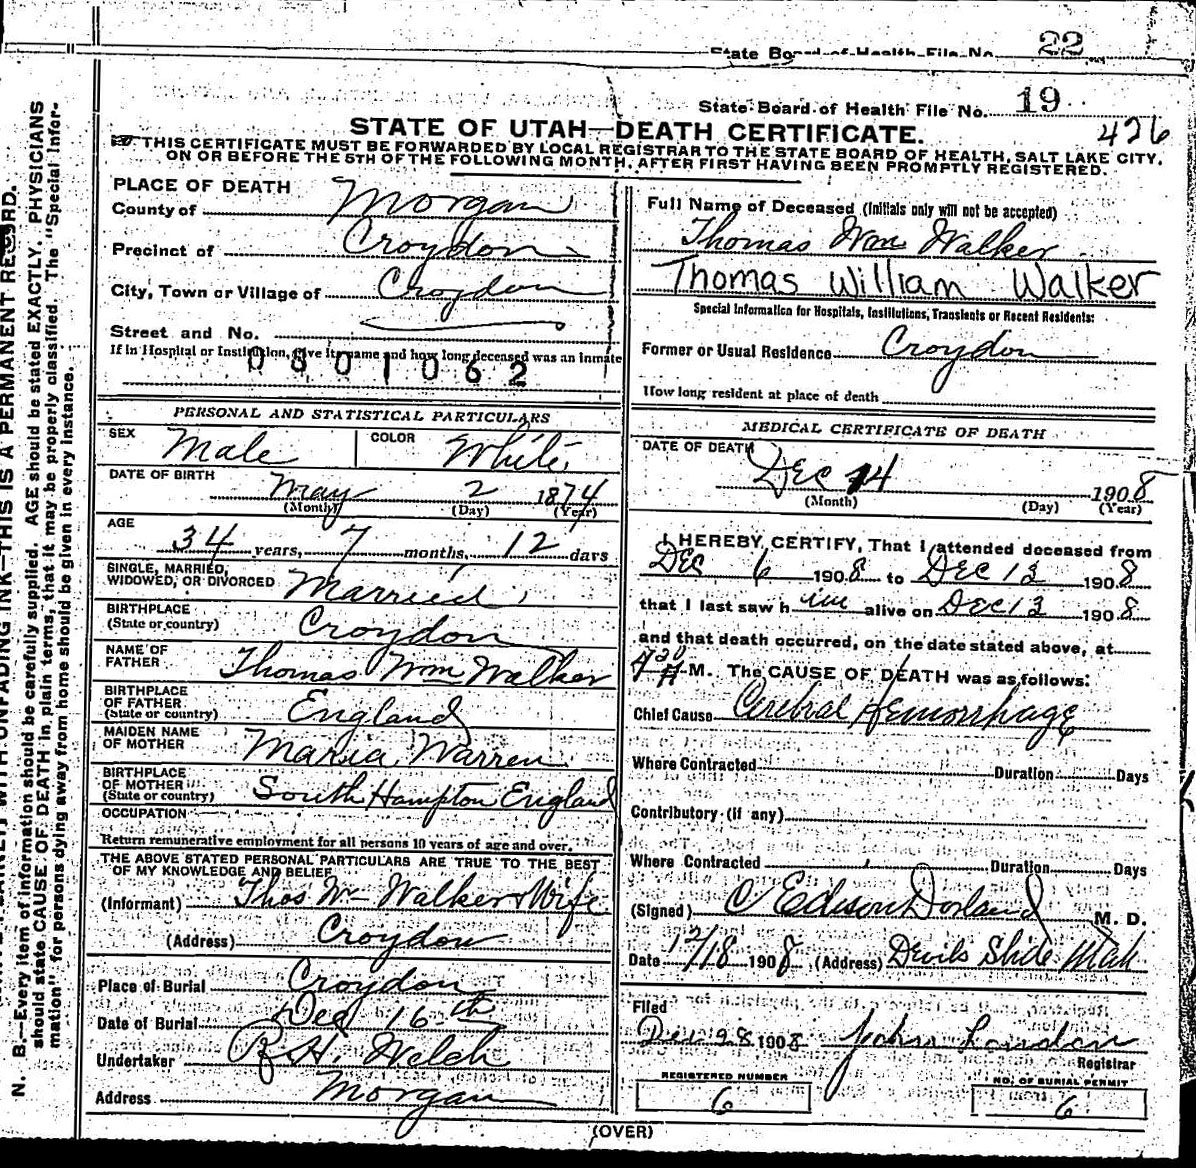 State Board of Health File No. 22
State Board of Health File No. 19
426
STATE OF UTAH—DEATH CERTIFICATE.
THIS CERTIFICATE MUST BE FORWARDED BY LOCAL REGISTRAR TO THE STATE BOARD OF HEALTH, SALT LAKE CITY,
ON OR BEFORE THE 5TH OF THE FOLLOWING MONTH, AFTER FIRST HAVING BEEN PROMPTLY REGISTERED.
PLACE OF DEATH
County of Morgan
Precinct of Croydon
City, Town or Village of Croydon
Street and No.
If in Hospital or Institution, give its name and how long deceased was an inmate
0801062
PERSONAL AND STATISTICAL PARTICULARS
SEX Male COLOR White
DATE OF BIRTH May 2 1874
(Month) (Day) (Year)
AGE 34 years, 7 months, 12 days
SINGLE, MARRIED,
WIDOWED, OR DIVORCED Married
BIRTHPLACE
(State or country) Croydon
NAME OF
FATHER Thomas Wm Walker
BIRTHPLACE
OF FATHER
(State or country) England
MAIDEN NAME
OF MOTHER Maria Warren
BIRTHPLACE
OF MOTHER
(State or country) South Hampton England
OCCUPATION
Return remunerative employment for all persons 10 years of age and over.
THE ABOVE STATED PERSONAL PARTICULARS ARE TRUE TO THE BEST
OF MY KNOWLEDGE AND BELIEF
(Informant) Thos W- Walker & Wife
(Address) Croydon
Place of Burial Croydon
Date of Burial Dec 16th
Undertaker R. H. Welch
Address Morgan
Full Name of Deceased (Initials only will not be accepted)
Thomas Wm Walker
Thomas William Walker
Special Information for Hospitals, Institutions, Transients or Recent Residents:
Former or Usual Residence Croydon
How long resident at place of death
MEDICAL CERTIFICATE OF DEATH
DATE OF DEATH
Dec 14 1908
(Month) (Day) (Year)
I HEREBY CERTIFY, That I attended deceased from
Dec 6 1908 to Dec 13 1908
that I last saw him alive on Dec 13 1908
and that death occurred, on the date stated above, at
M. The CAUSE OF DEATH was as follows:
Chief Cause Cerebral Hemorrhage
Where Contracted Duration Days
Contributory (if any)
Where Contracted Duration Days
(Signed) C Edison Dorland M. D.
Date 12/18 1908 (Address) Devils Slide Utah
Filed
Dec 28 1908 John London
Registrar
REGISTERED NUMBER
6
NO. OF BURIAL PERMIT
6
(OVER)
N. B.—Every item of information should be carefully supplied. AGE should be stated EXACTLY. PHYSICIANS
should state CAUSE OF DEATH in plain terms, that it may be properly classified. The "Special Infor-
mation" for persons dying away from home should be given in every instance.
WITH UNFADING INK—THIS IS A PERMANENT RECORD.